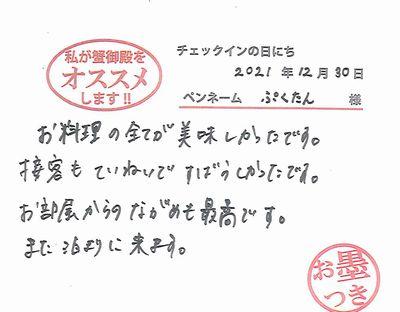 私が蟹御殿を
オススメ
します!!
チェックインの日にち
2021 年 12 月 30 日
ペンネーム ぷくたん 様
お料理の全てが美味しかったです。
接客もていねいですばらしかったです。
お部屋からのながめも最高です。
また泊まりに来ます。
お墨
つき